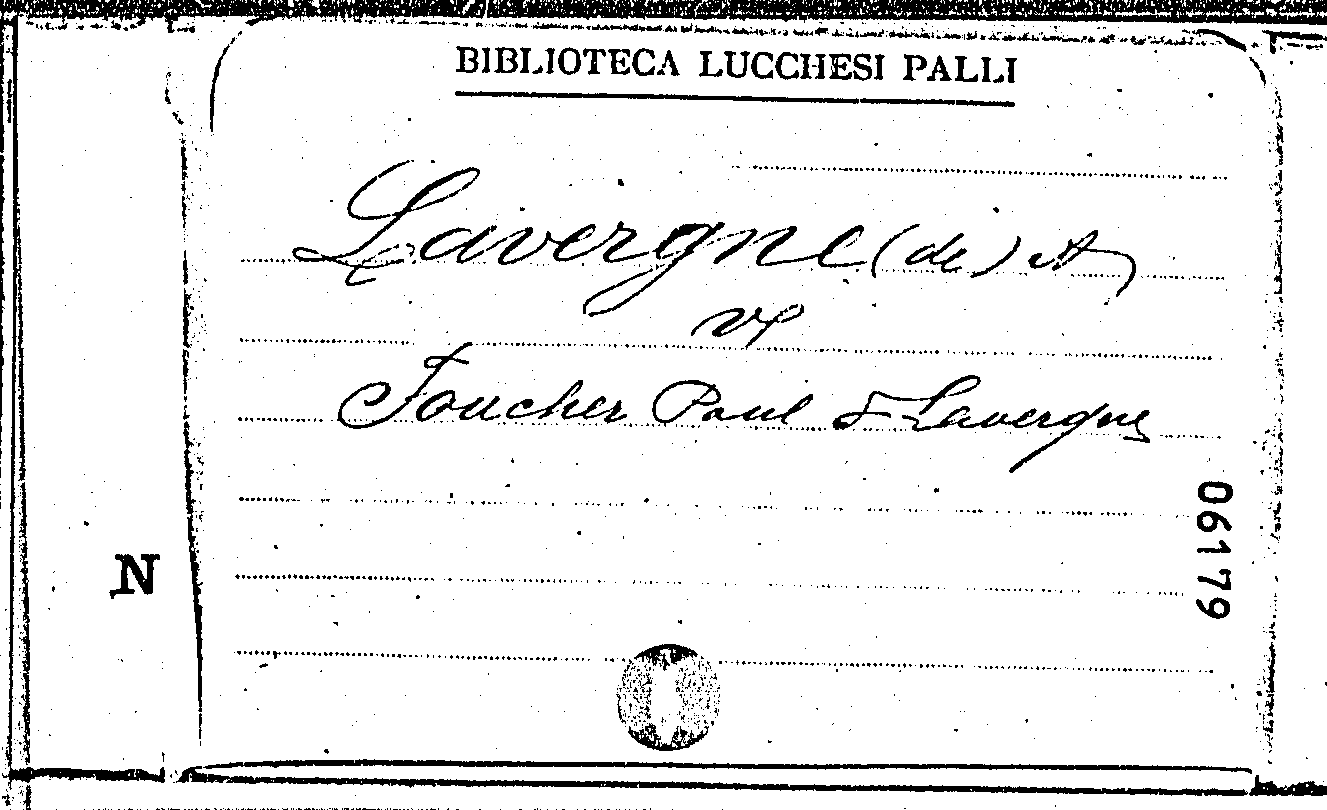 BIBLIOTECA LUCCHESI PALLI
Lavergne (de) A
ve
Foucher Paul & Lavergne
06179
N